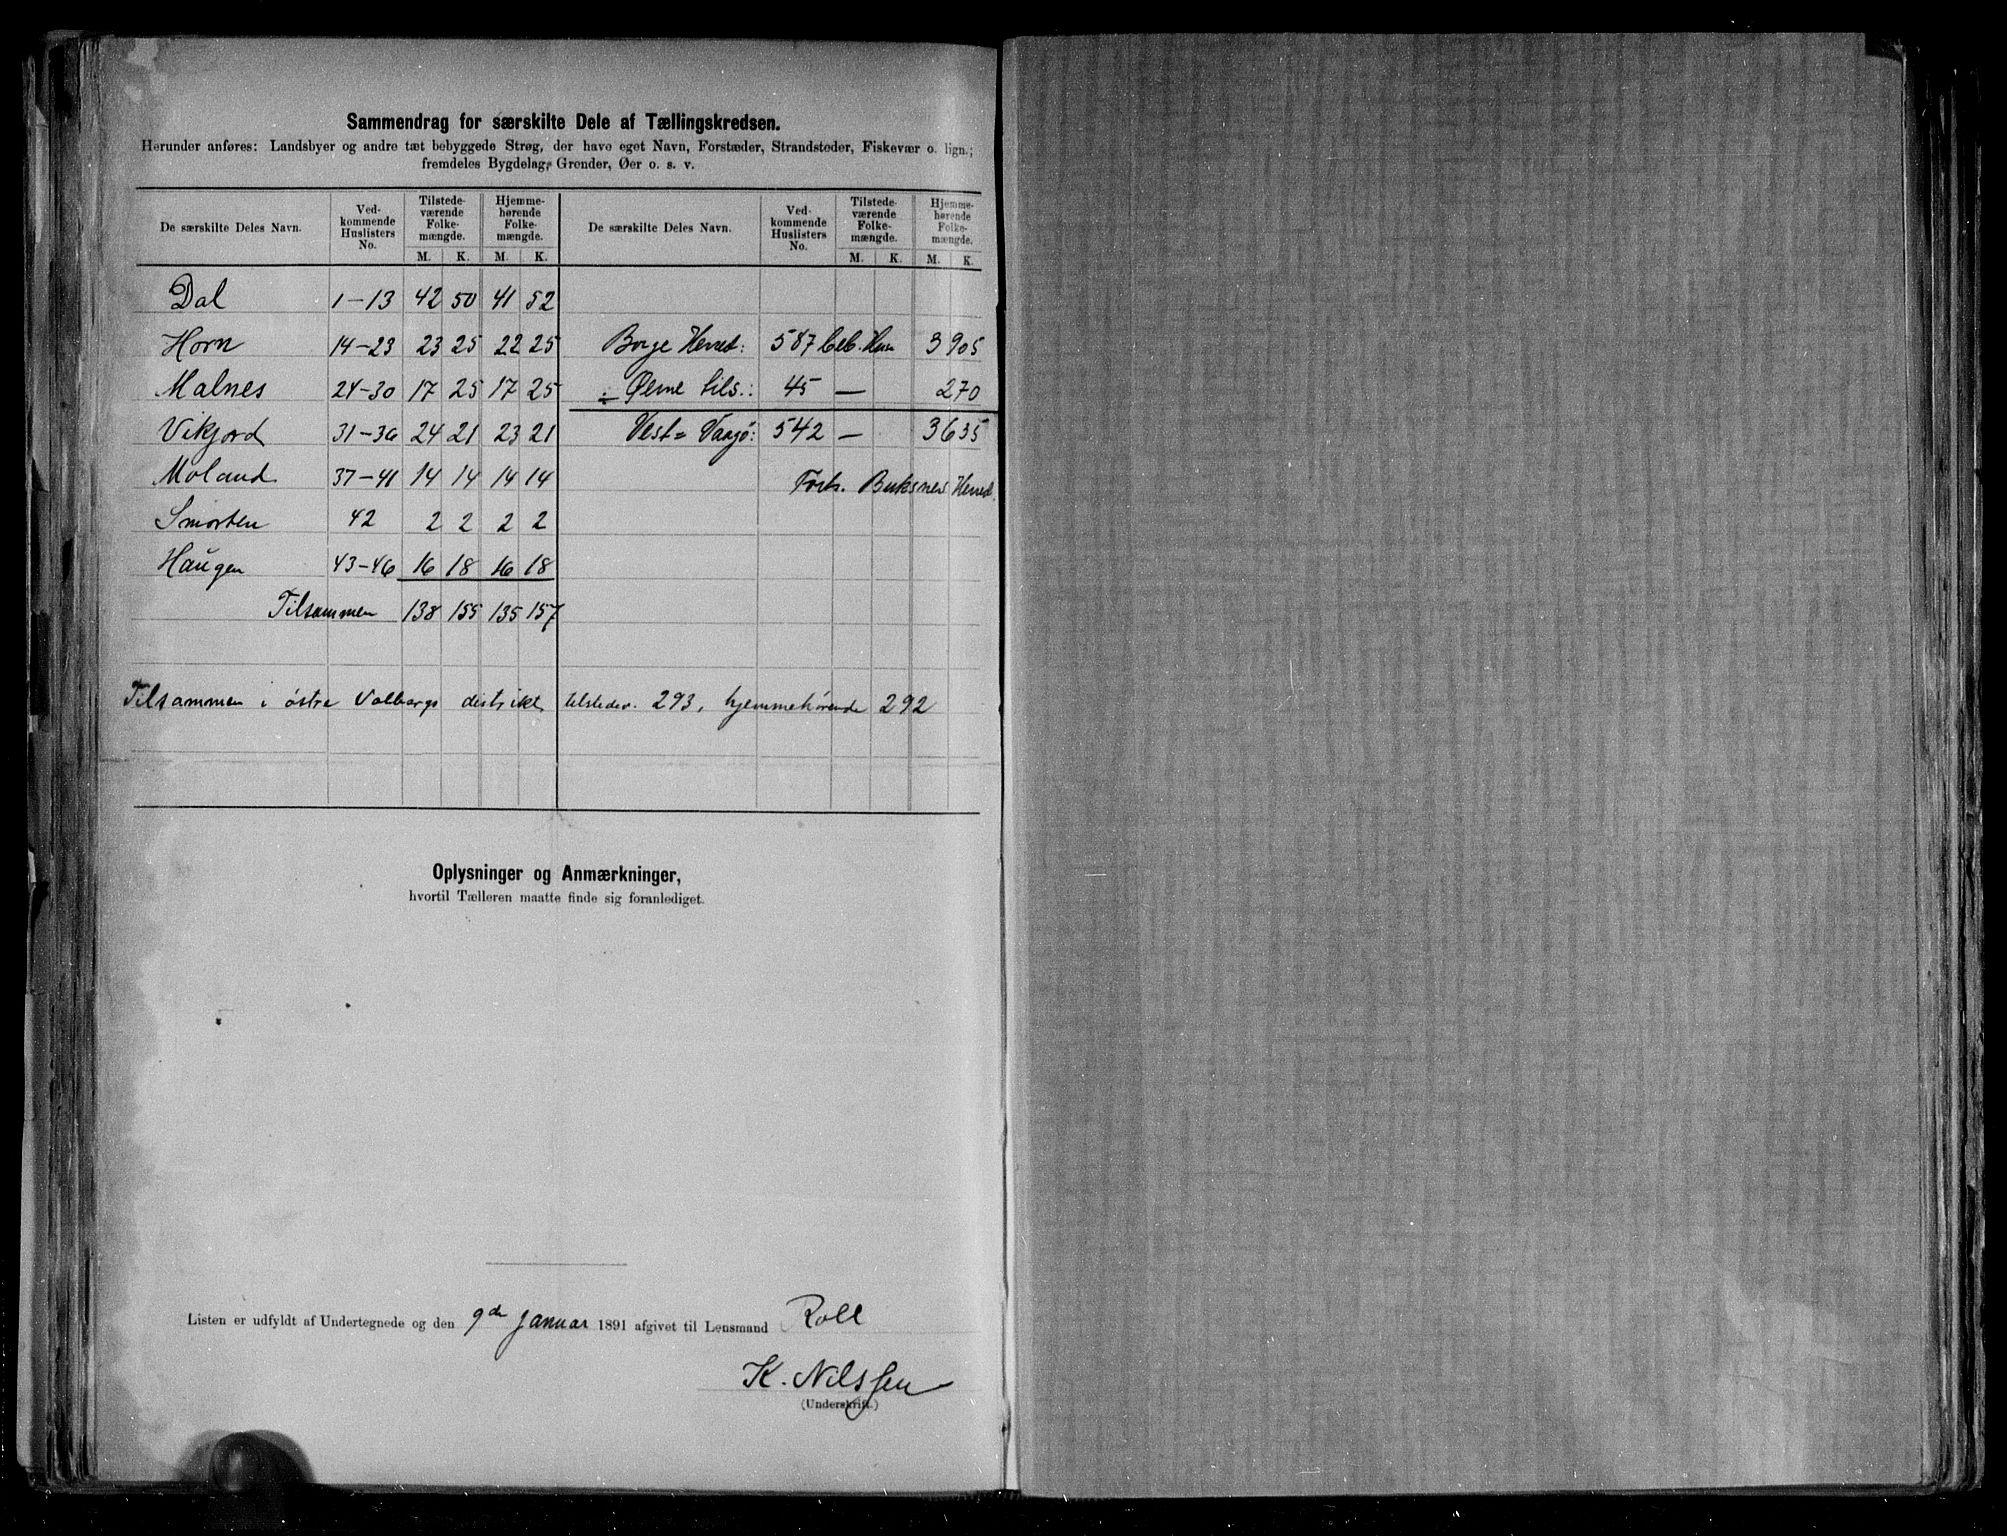 Sammendrag for særskilte Dele af Tællingskredsen.
Herunder anføres: Landsbyer og andre tæt bebyggede Strøg, der have eget Navn, Forstæder, Strandsteder, Fiskevær o. lign.;
fremdeles Bygdelag, Grender, Øer o. s. v.
De særskilte Deles Navn. Ved-kommende Huslisters No. Tilstede-værende Folke-mængde. Hjemme-hørende Folke-mængde. De særskilte Deles Navn. Ved-kommende Huslisters No. Tilstede-værende Folke-mængde. Hjemme-hørende Folke-mængde.
M. K. M. K. M. K. M. K.
Dal 1-13 42 50 41 52
Horn 14-23 23 25 22 25 Borge Herred: 587 beb. Huse 3905
Malnes 24-30 17 25 17 25 ÷ Øerne tils.: 45 — 270
Vikjord 31-36 24 21 23 21 Vest= Vaagø: 542 — 3635
Moland 37-41 14 14 14 14 Forts. Buksnes Herred.
Smorten 42 2 2 2 2
Haugen 43-46 16 18 16 18
Tilsammen 138 155 135 157
Tilsammen i østre Valbergs distrikt tilstedev. 293, hjemmehørende 292
Oplysninger og Anmærkninger,
hvortil Tælleren maatte finde sig foranlediget.
Listen er udfyldt af Undertegnede og den 9de Januar 1891 afgivet til Lensmand Roll
K. Nilssen
(Underskrift.)